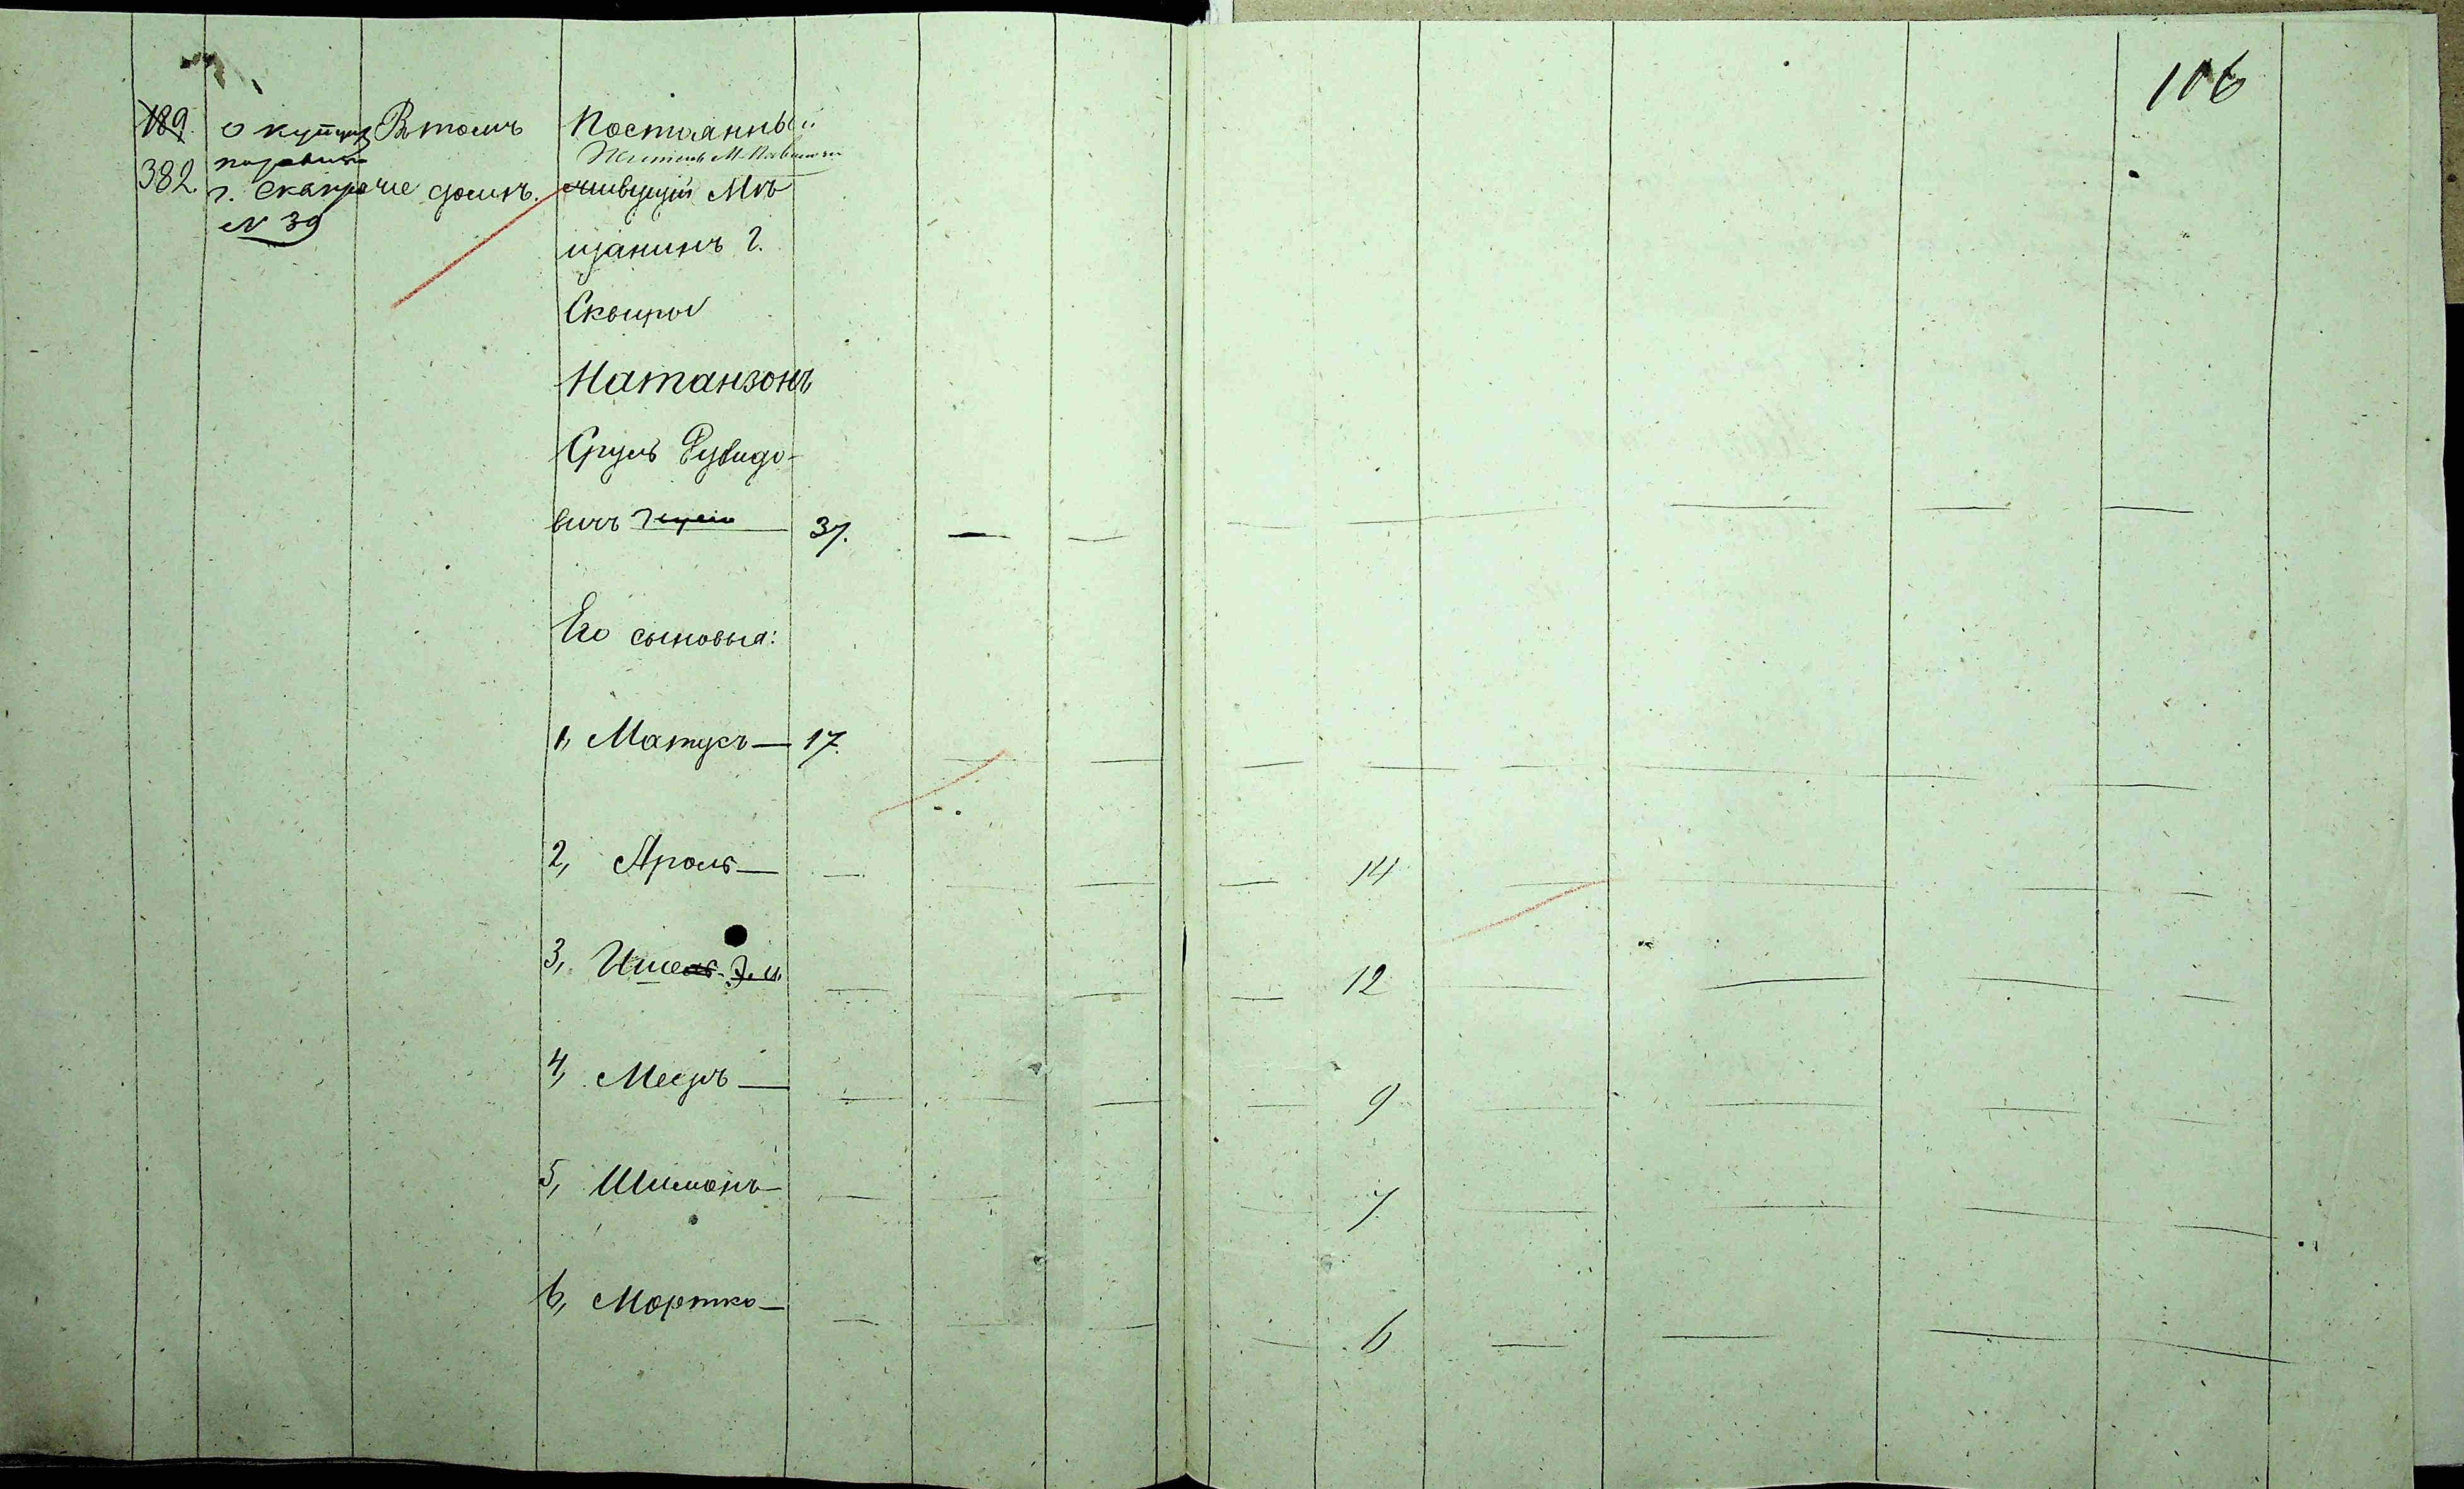 106
189.
382.
о купцах
г. Сквирѣ
N 39
В томъ
же домѣ.
Постоянный
Житель М. Паволочи
живущій Мѣ
щанинъ г.
Сквиры
Натанзонъ
Сруль Рувидо-
вичъ 37.
Его сыновья:
1, Матусъ — 17.
2, Ароль — 14
3, Ицель 12
4, Мееръ — 9
5, Шимонъ — 7
6, Мортко — 6